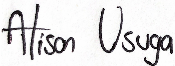 Alison Usuga